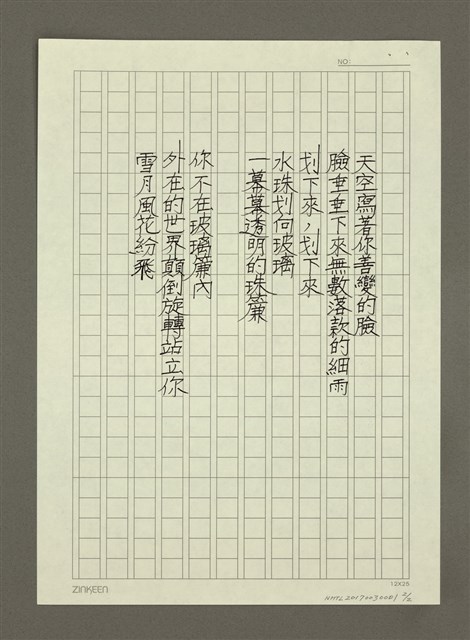 NO:
天空寫著你善變的臉
臉垂垂下來無數落款的細雨
划下來，划下來
水珠划向玻璃
一幕幕透明的珠簾
你不在玻璃簾內
外在的世界顛倒旋轉站立你
雪月風花紛飛
ZINKEEN
12X25
NMTL20170030001 2/2